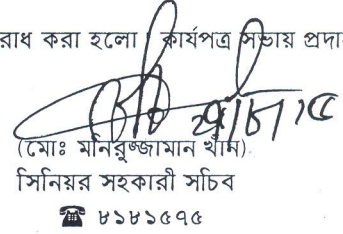 রোধ করা হলো। কার্যপত্র সভায় প্রদা
(মোঃ মনিরুজ্জামান খাঁন)
সিনিয়র সহকারী সচিব
☎ ৮১৮১৫৭৫